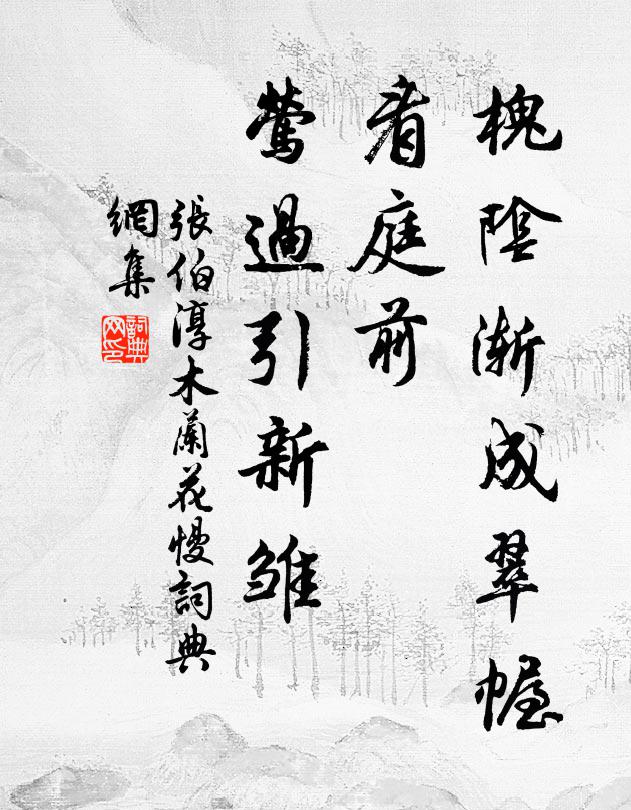 槐陰漸成翠幄
看庭前
鶯過引新雛
張伯淳木蘭花慢詞典
網集
詞典
网印